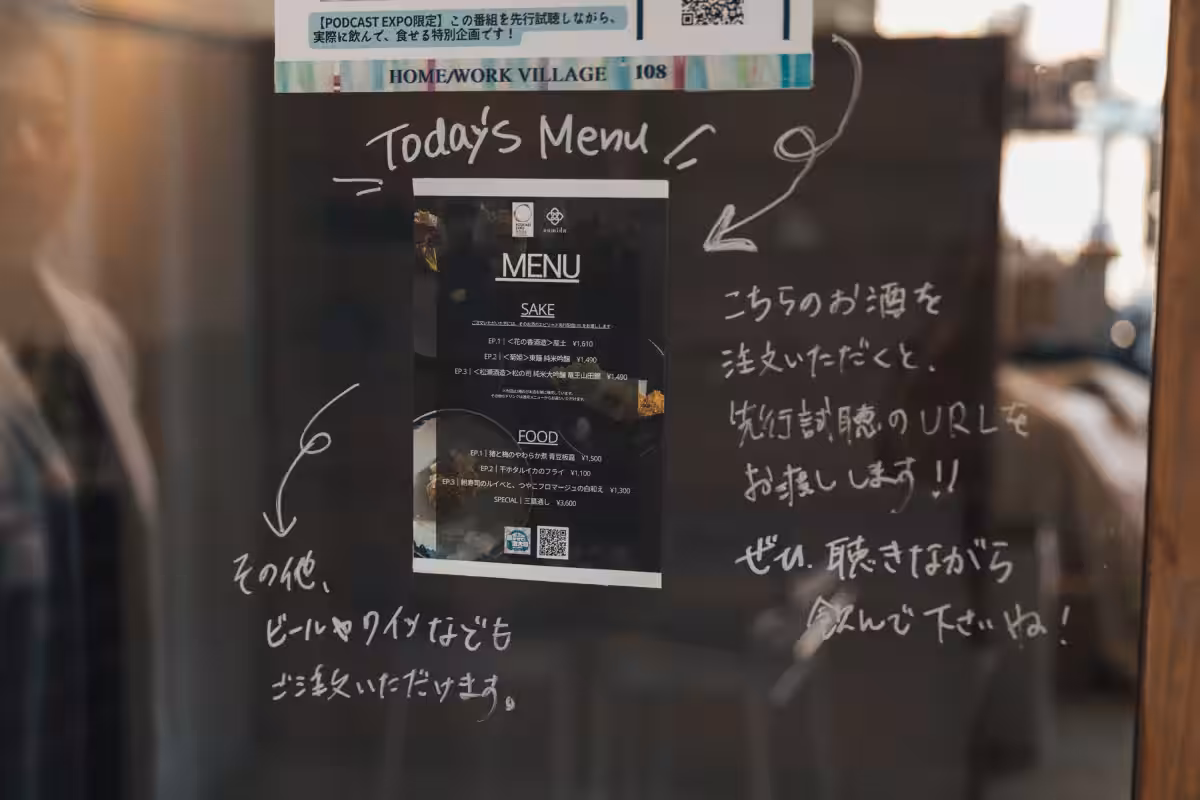 【PODCAST EXPO限定】この番組を先行試聴しながら、
実際に飲んで、食せる特別企画です！
HOME/WORK VILLAGE 108
Today's Menu
MENU
SAKE
EP.1｜＜花の香酒造＞産土 ¥1,610
EP.2｜＜菊姫＞東籬 純米吟醸 ¥1,490
EP.3｜＜松瀬酒造＞松の司 純米大吟醸 竜王山田錦 ¥1,490
FOOD
EP.1｜猪と梅のやわらか煮 青豆板醤 ¥1,500
EP.2｜干ホタルイカのフライ ¥1,100
EP.3｜鮒寿司のルイベと、つやこフロマージュの白和え ¥1,300
SPECIAL｜三品通し ¥3,600
こちらのお酒を
注文いただくと、
先行試聴のURLを
お渡しします!!
ぜひ、聴きながら
飲んで下さいね！
その他、
ビールやワインなども
ご注文いただけます。